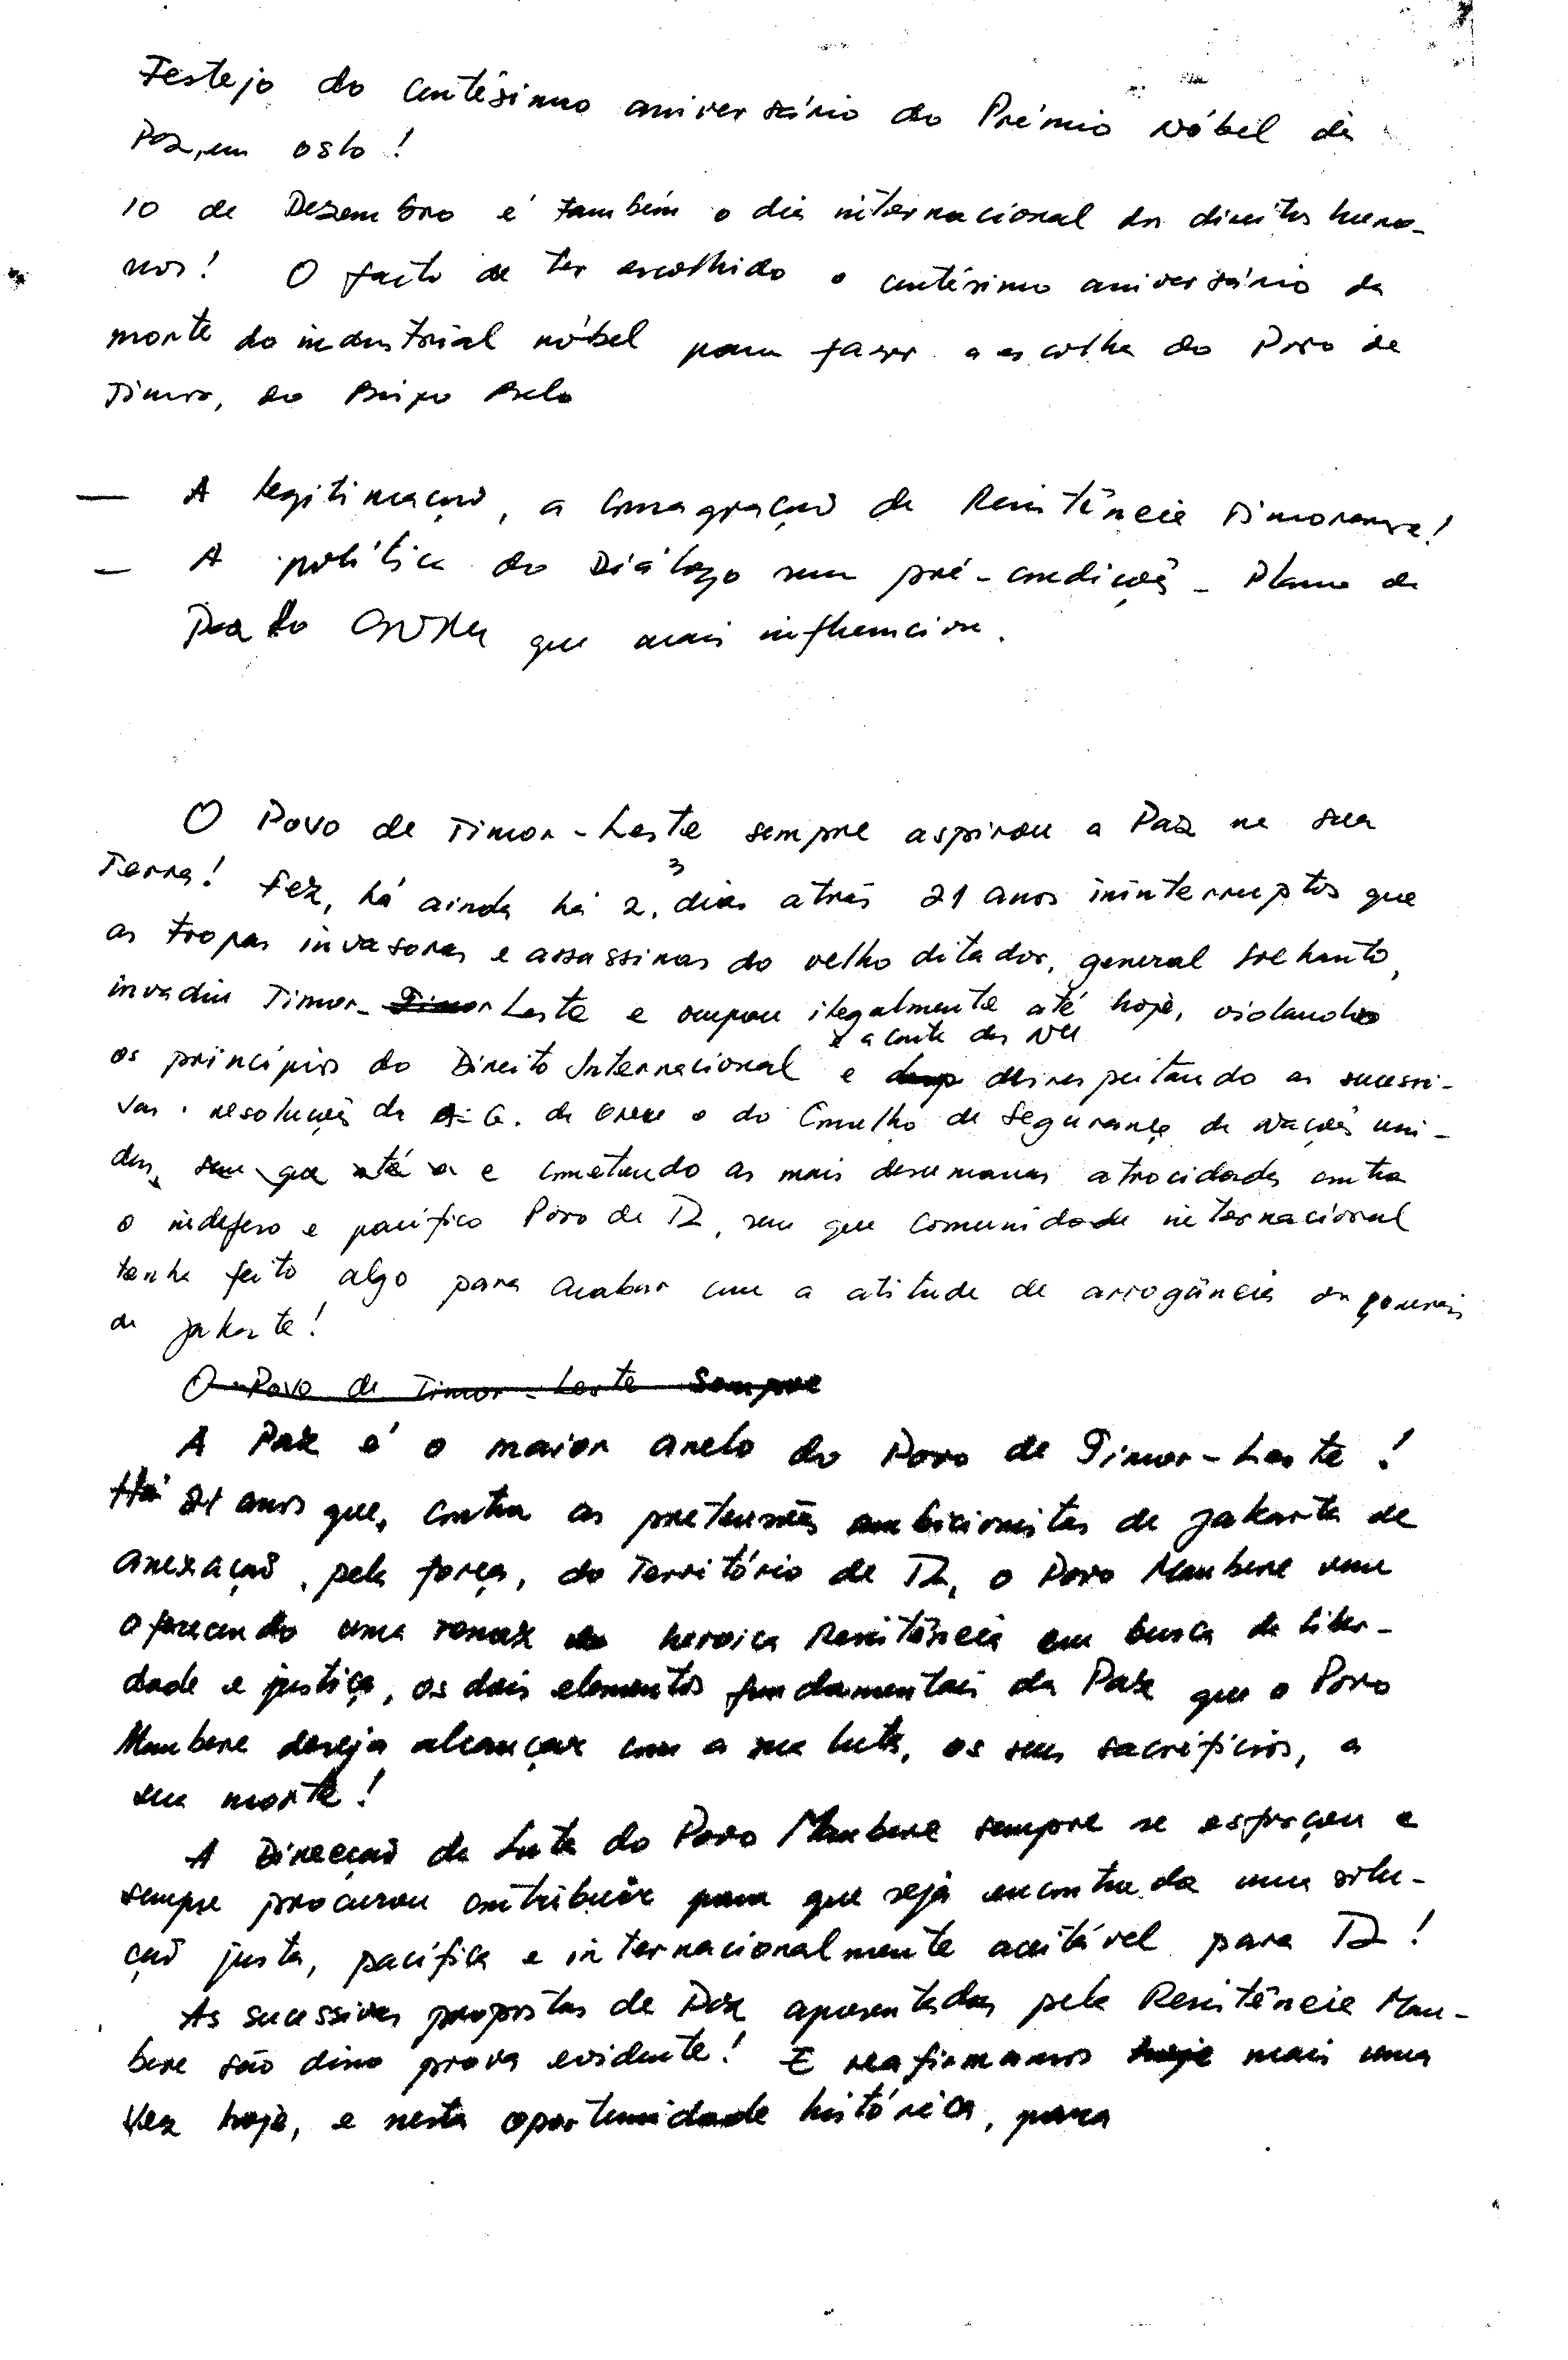 Festejo do centésimo aniversário do Prémio Nóbel da
Paz, em Oslo!
10 de Dezembro é também o dia internacional dos direitos huma-
nos! O facto de ter escolhido o centésimo aniversário da
morte do industrial nóbel para fazer a escolha do Povo de
Timor, do Bispo Belo
— A legitimação, a consagração da Resistência Timorense!
— A política do Diálogo sem pré-condições - Plano de
Paz do CNRM que mais influenciou.
O Povo de Timor-Leste sempre aspirou a Paz na sua
Terra! Fez, há ainda há 2, 3 dias atrás 21 anos ininterruptos que
as tropas invasoras e assassinas do velho ditador, general Suharto,
invadiu Timor- Timor Leste e ocupou ilegalmente até hoje, violando
e a carta das NU
os princípios do Direito Internacional e desrespeitando as sucessi-
vas resoluções da A. G. da e do Conselho de Segurança da Nações Uni-
das, sem que até a e cometendo as mais desumanas atrocidades contra
o indefeso e pacífico Povo de TL, sem que comunidade internacional
tenha feito algo para acabar com a atitude de arrogância dos generais
de Jakarta!
O Povo de Timor-Leste sempre
A Paz é o maior anelo do Povo de Timor-Leste!
Há 21 anos que, contra as pretensões ambicionistas de Jakarta de
anexação, pela força, do Território de TL, o Povo Maubere vem
oferecendo uma tenaz heroica Resistência em busca da liber-
dade e justiça, os dois elementos fundamentais da Paz que o Povo
Maubere deseja alcançar com a sua luta, os seus sacrifícios, a
sua morte!
A Direcção da Luta do Povo Maubere sempre se esforçou e
sempre procurou contribuir para que seja encontrada uma solu-
ção justa, pacífica e internacionalmente aceitável para TL!
As sucessivas propostas de Paz apresentadas pela Resistência Mau-
bere são disso prova evidente! E reafirmamos hoje mais uma
vez hoje, e nesta oportunidade histórica, para